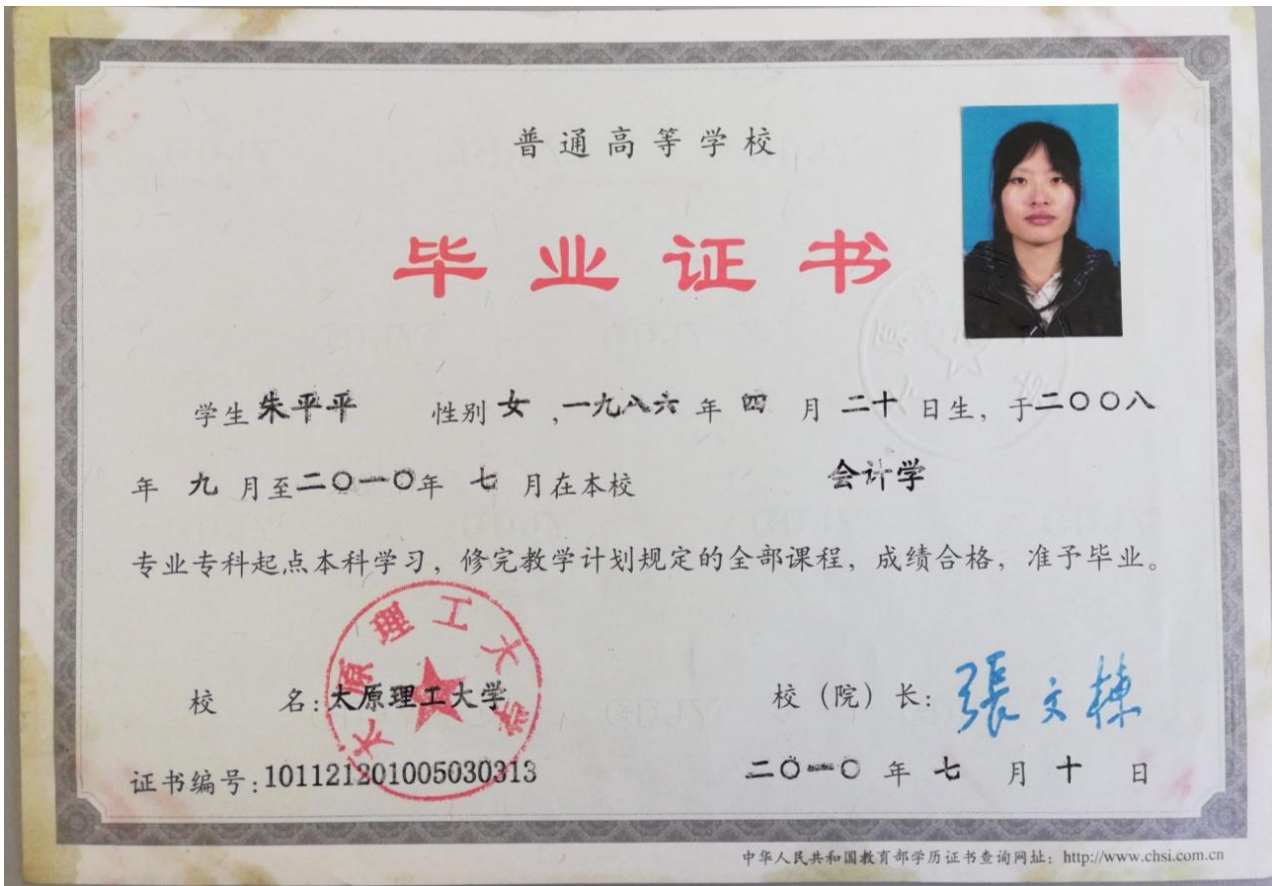 普通高等学校
毕业证书
学生 朱平平 性别 女 ,一九八六 年 四 月 二十 日生, 于二〇〇八
年 九 月至二〇一〇年 七 月在本校 会计学
专业专科起点本科学习, 修完教学计划规定的全部课程, 成绩合格, 准予毕业。
太原理工大学
校 名: 太原理工大学 校 (院) 长: 張文棟
证书编号: 101121201005030313 二〇一〇 年 七 月 十 日
中华人民共和国教育部学历证书查询网址: http://www.chsi.com.cn